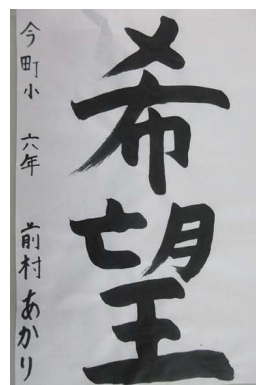 希望
今町小 六年 前村あかり